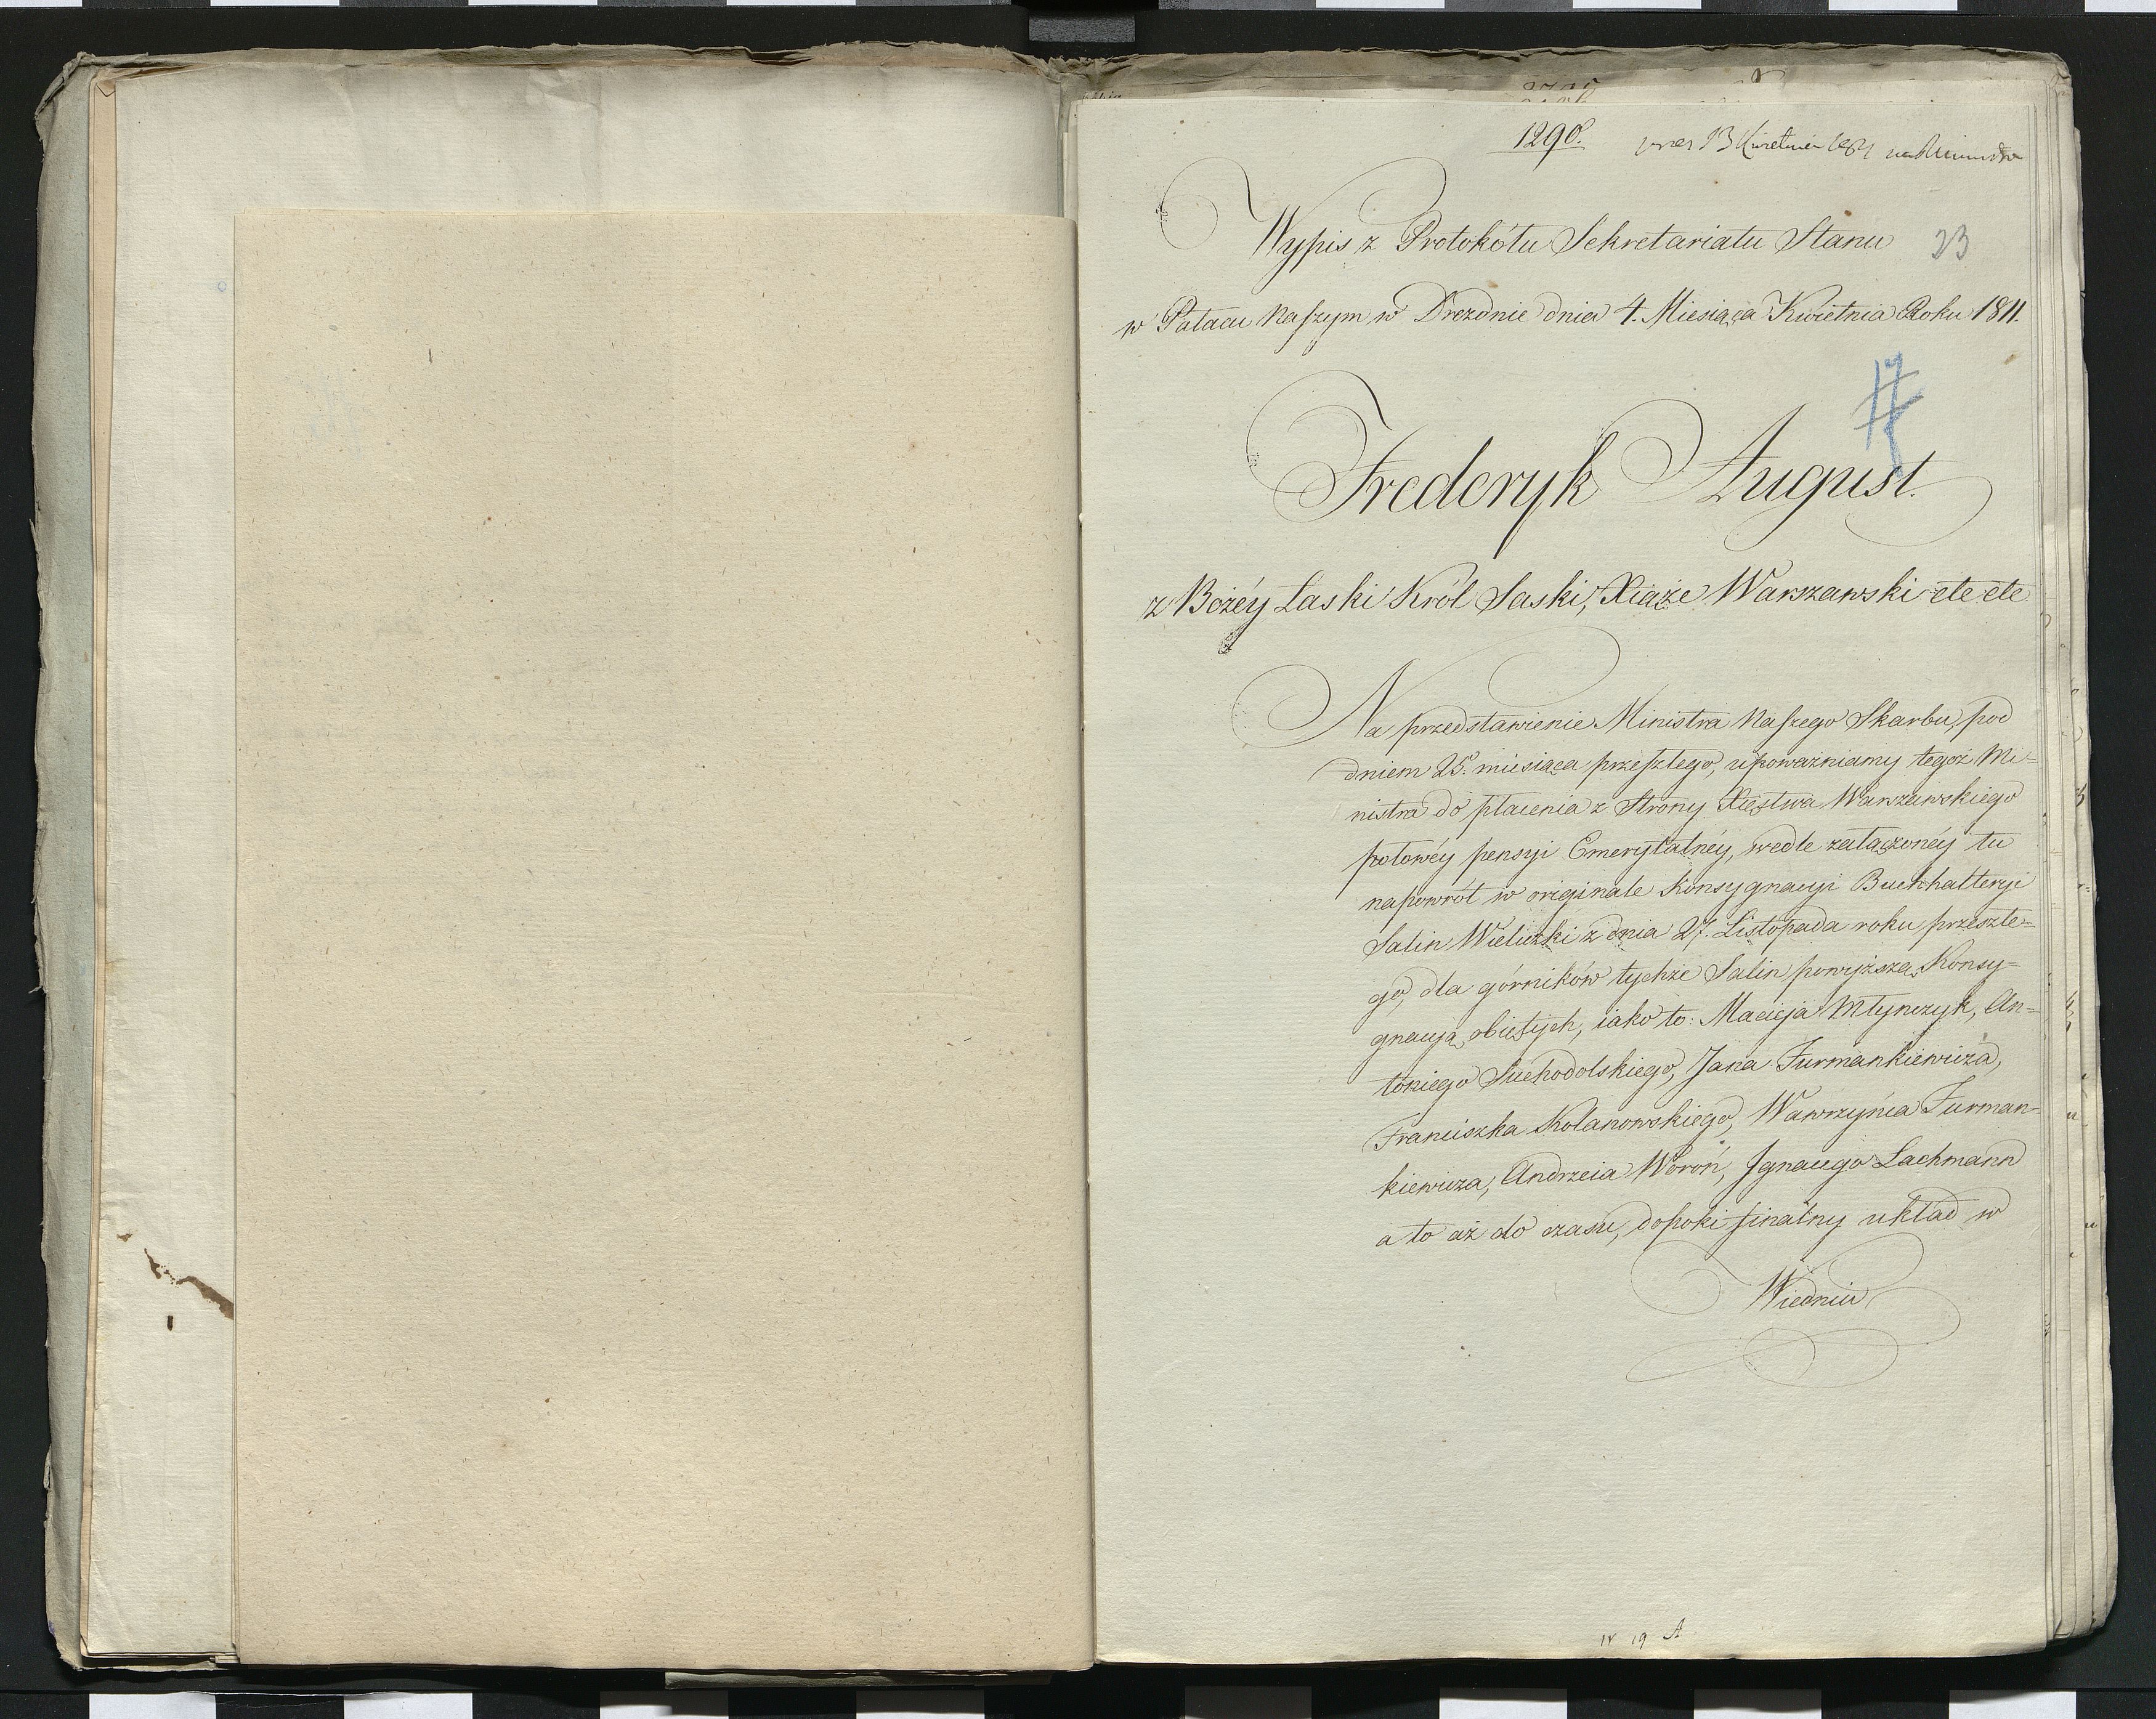 1290.
13 Kwietnia
Wypis z Protokółu Sekretariatu Stanu
23
w Pałacu Naszym w Dreznie dnia 4. Miesiąca Kwietnia Roku 1811.
17
Frederyk August.
z Bożéy Łaski Król Saski, Xiąże Warszawski etc etc
Na przedstawienie Ministra Naszego Skarbu, pod
dniem 25. miesiąca przeszłego, upoważniamy tegoż Mi=
nistra do płacenia z Strony Xięstwa Warszawskiego
połowéy pensyi Emerytalnéy, wedle załączonéy tu
napowrót w originale Konsygnacyi Buchhalteryi
Salin Wieliczki z dnia 27. Listopada roku przeszłe=
go, dla górników tychże Salin powyższą Konsy=
gnacyą obiętych, iako to: Macieja Młynczyk, An=
toniego Suchodolskiego, Jana Furmankiewicza,
Franciszka Kolanowskiego, Wawrzyńca Furman=
kiewicza, Andrzeia Woroń, Ignacego Lachmann
a to aż do czasu, dopoki finalny układ w
Wiedniu
19 A